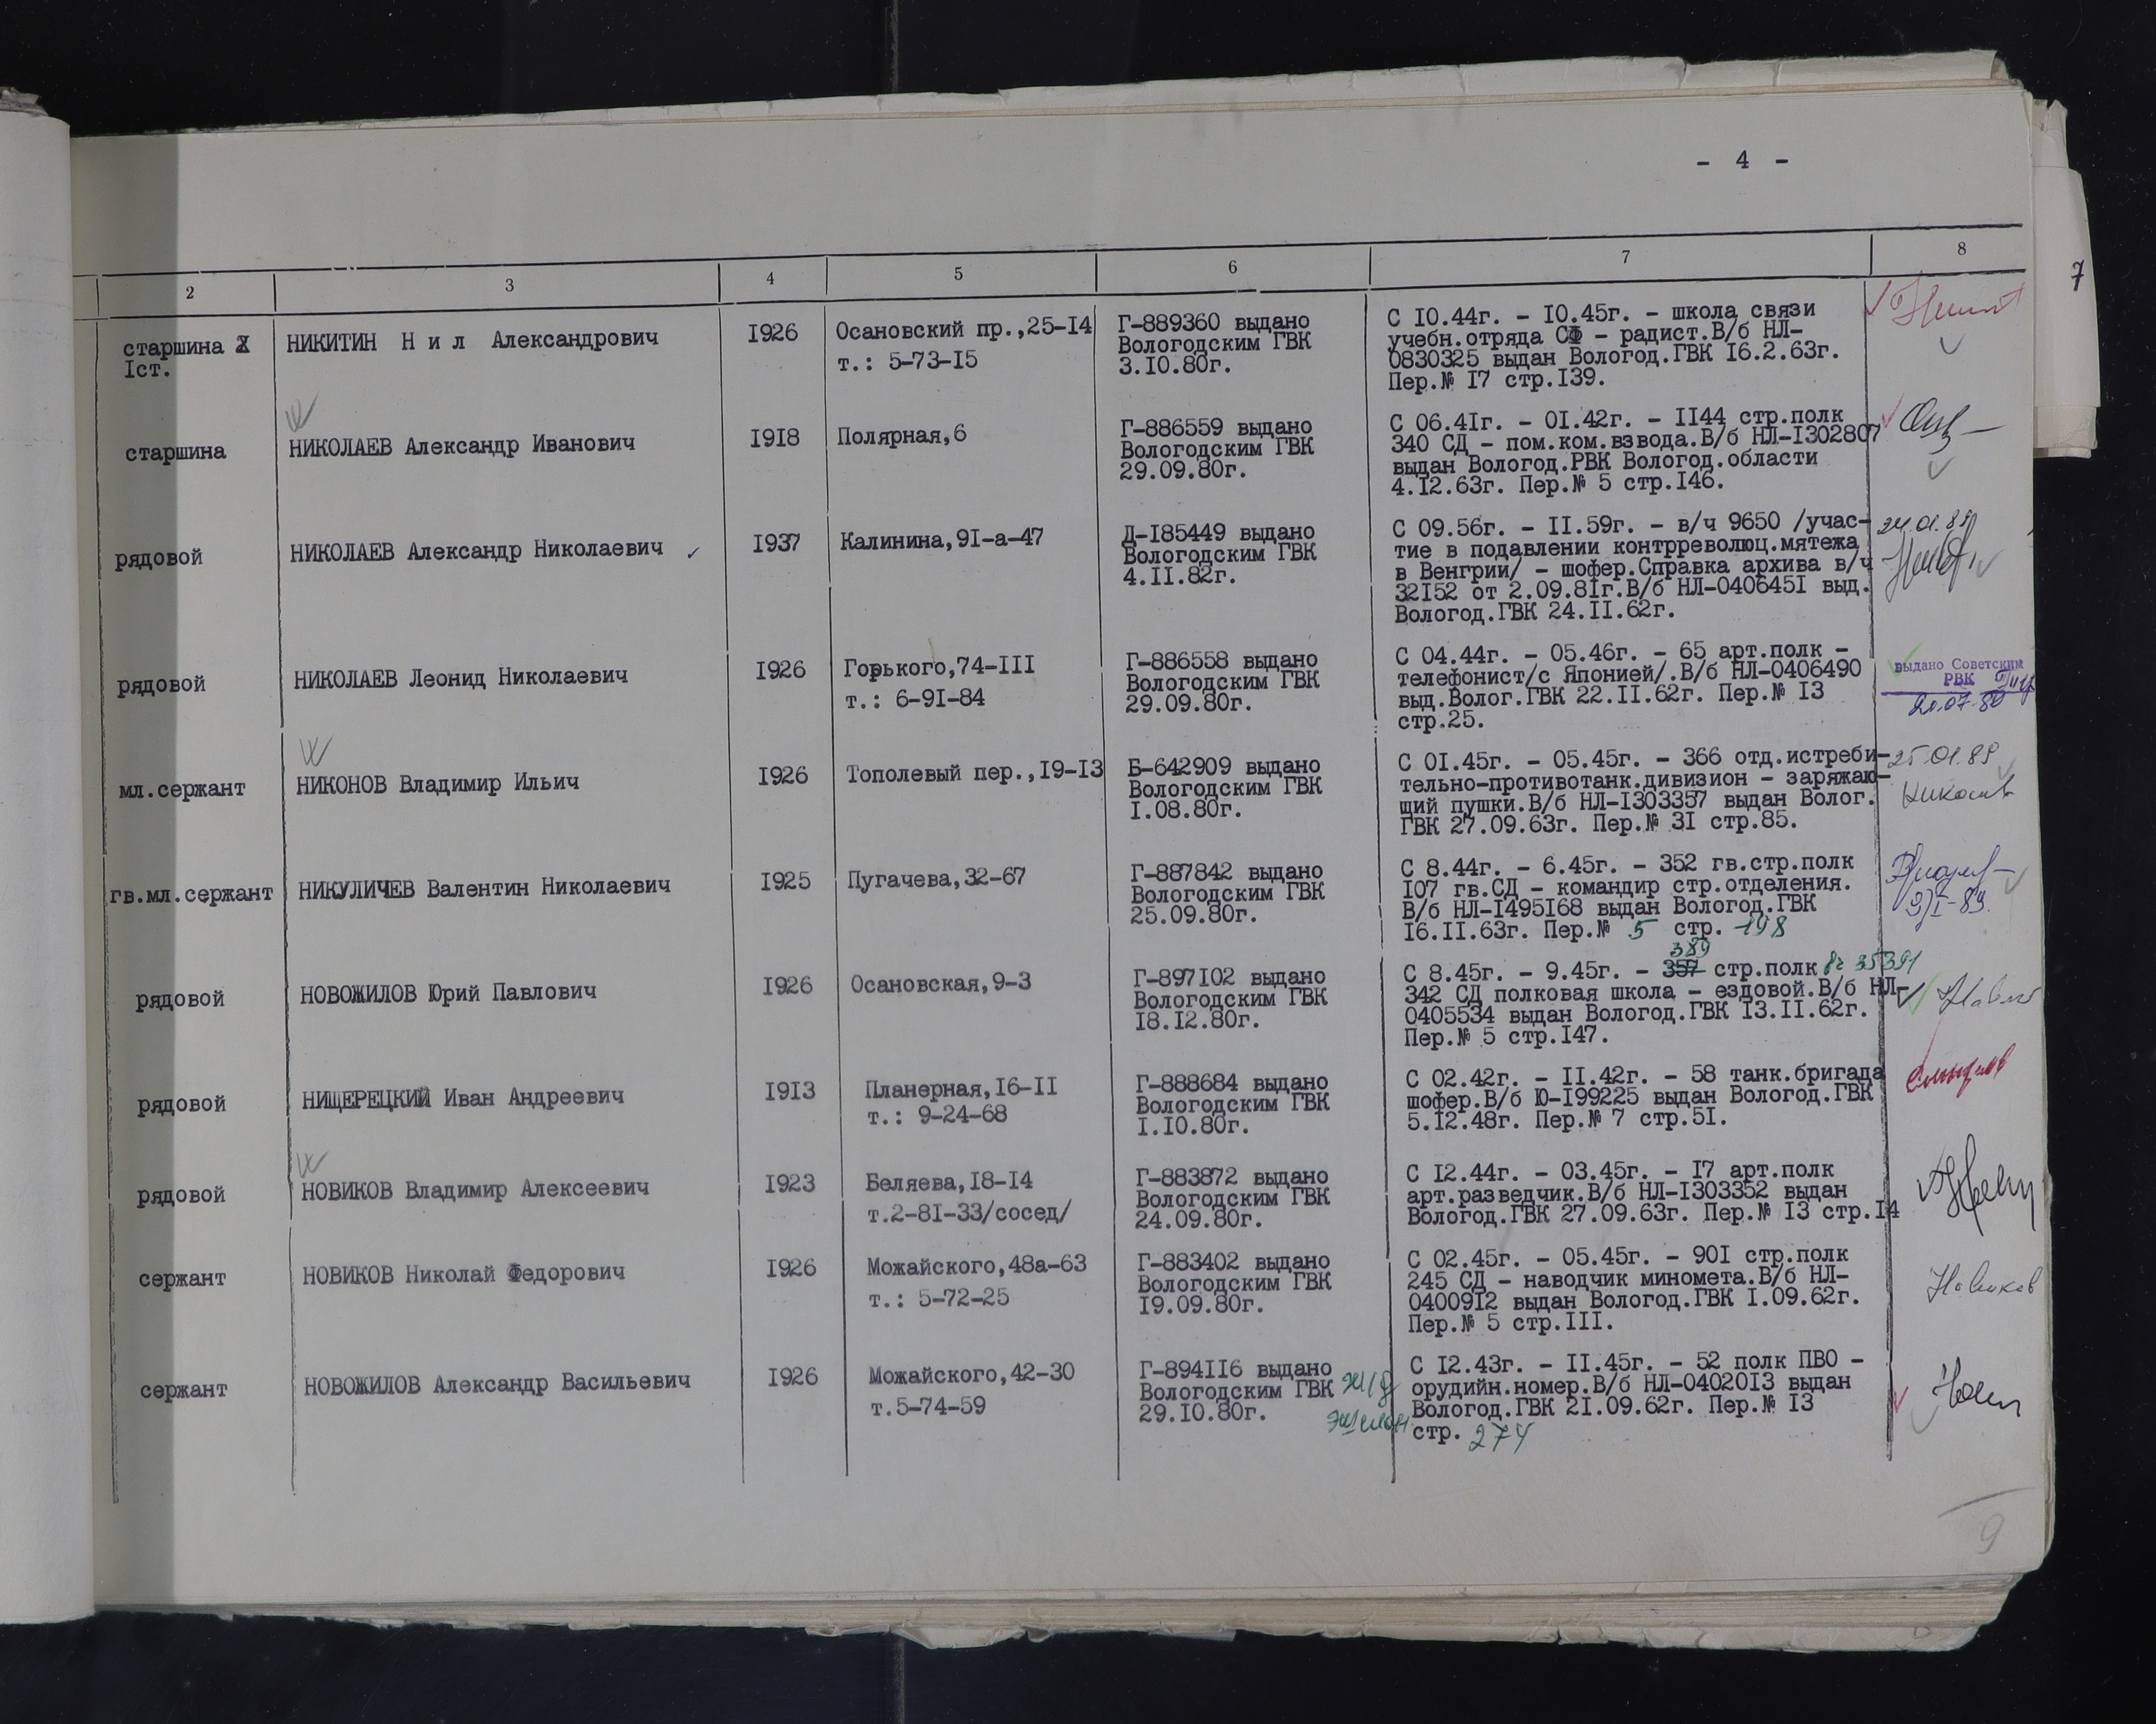 - 4 -
7
2 3 4 5 6 7 8
старшина
Iст.
НИКИТИН Н и л Александрович
1926
Осановский пр.,25-14
т.: 5-73-15
Г-889360 выдано
Вологодским ГВК
3.10.80г.
С 10.44г. - 10.45г. - школа связи
учебн.отряда СФ - радист.В/б НЛ-
0830325 выдан Вологод.ГВК 16.2.63г.
Пер.№ 17 стр.139.
старшина
НИКОЛАЕВ Александр Иванович
1918
Полярная,6
Г-886559 выдано
Вологодским ГВК
29.09.80г.
С 06.41г. - 01.42г. - 1144 стр.полк
340 СД - пом.ком.взвода.В/б НЛ-1302807
выдан Вологод.РВК Вологод.области
4.12.63г. Пер.№ 5 стр.146.
рядовой
НИКОЛАЕВ Александр Николаевич
1937
Калинина,91-а-47
Д-185449 выдано
Вологодским ГВК
4.11.82г.
С 09.56г. - 11.59г. - в/ч 9650 /учас-
тие в подавлении контрреволюц.мятежа
в Венгрии/ - шофер.Справка архива в/ч
32152 от 2.09.81г.В/б НЛ-0406451 выд.
Вологод.ГВК 24.11.62г.
24.01.89
рядовой
НИКОЛАЕВ Леонид Николаевич
1926
Горького,74-111
т.: 6-91-84
Г-886558 выдано
Вологодским ГВК
29.09.80г.
С 04.44г. - 05.46г. - 65 арт.полк -
телефонист/с Японией/.В/б НЛ-0406490
выд.Волог.ГВК 22.11.62г. Пер.№ 13
стр.25.
выдано Советским
РВК
мл.сержант
НИКОНОВ Владимир Ильич
1926
Тополевый пер.,19-13
Б-642909 выдано
Вологодским ГВК
1.08.80г.
С 01.45г. - 05.45г. - 366 отд.истреби-
тельно-противотанк.дивизион - заряжаю-
щий пушки.В/б НЛ-1303357 выдан Волог.
ГВК 27.09.63г. Пер.№ 31 стр.85.
25.01.89
гв.мл.сержант
НИКУЛИЧЕВ Валентин Николаевич
1925
Пугачева,32-67
Г-887842 выдано
Вологодским ГВК
25.09.80г.
С 8.44г. - 6.45г. - 352 гв.стр.полк
107 гв.СД - командир стр.отделения.
В/б НЛ-1495168 выдан Вологод.ГВК
16.11.63г. Пер.№ 5 стр. 198
рядовой
НОВОЖИЛОВ Юрий Павлович
1926
Осановская,9-3
Г-897102 выдано
Вологодским ГВК
18.12.80г.
389
С 8.45г. - 9.45г. - 357 стр.полк вч 35391
342 СД полковая школа - ездовой.В/б НЛ-
0405534 выдан Вологод.ГВК 13.11.62г.
Пер.№ 5 стр.147.
рядовой
НИЩЕРЕЦКИЙ Иван Андреевич
1913
Планерная,16-11
т.: 9-24-68
Г-888684 выдано
Вологодским ГВК
1.10.80г.
С 02.42г. - 11.42г. - 58 танк.бригада
шофер.В/б Ю-199225 выдан Вологод.ГВК
5.12.48г. Пер.№ 7 стр.51.
рядовой
НОВИКОВ Владимир Алексеевич
1923
Беляева,18-14
т.2-81-33/сосед/
Г-883872 выдано
Вологодским ГВК
24.09.80г.
С 12.44г. - 03.45г. - 17 арт.полк
арт.разведчик.В/б НЛ-1303352 выдан
Вологод.ГВК 27.09.63г. Пер.№ 13 стр.14
сержант
НОВИКОВ Николай Федорович
1926
Можайского,48а-63
т.: 5-72-25
Г-883402 выдано
Вологодским ГВК
19.09.80г.
С 02.45г. - 05.45г. - 901 стр.полк
245 СД - наводчик миномета.В/б НЛ-
0400912 выдан Вологод.ГВК 1.09.62г.
Пер.№ 5 стр.111.
Новиков
сержант
НОВОЖИЛОВ Александр Васильевич
1926
Можайского,42-30
т.5-74-59
Г-894116 выдано
Вологодским ГВК
29.10.80г.
ж/д
эшелон
С 12.43г. - 11.45г. - 52 полк ПВО -
орудийн.номер.В/б НЛ-0402013 выдан
Вологод.ГВК 21.09.62г. Пер.№ 13
стр. 274
9